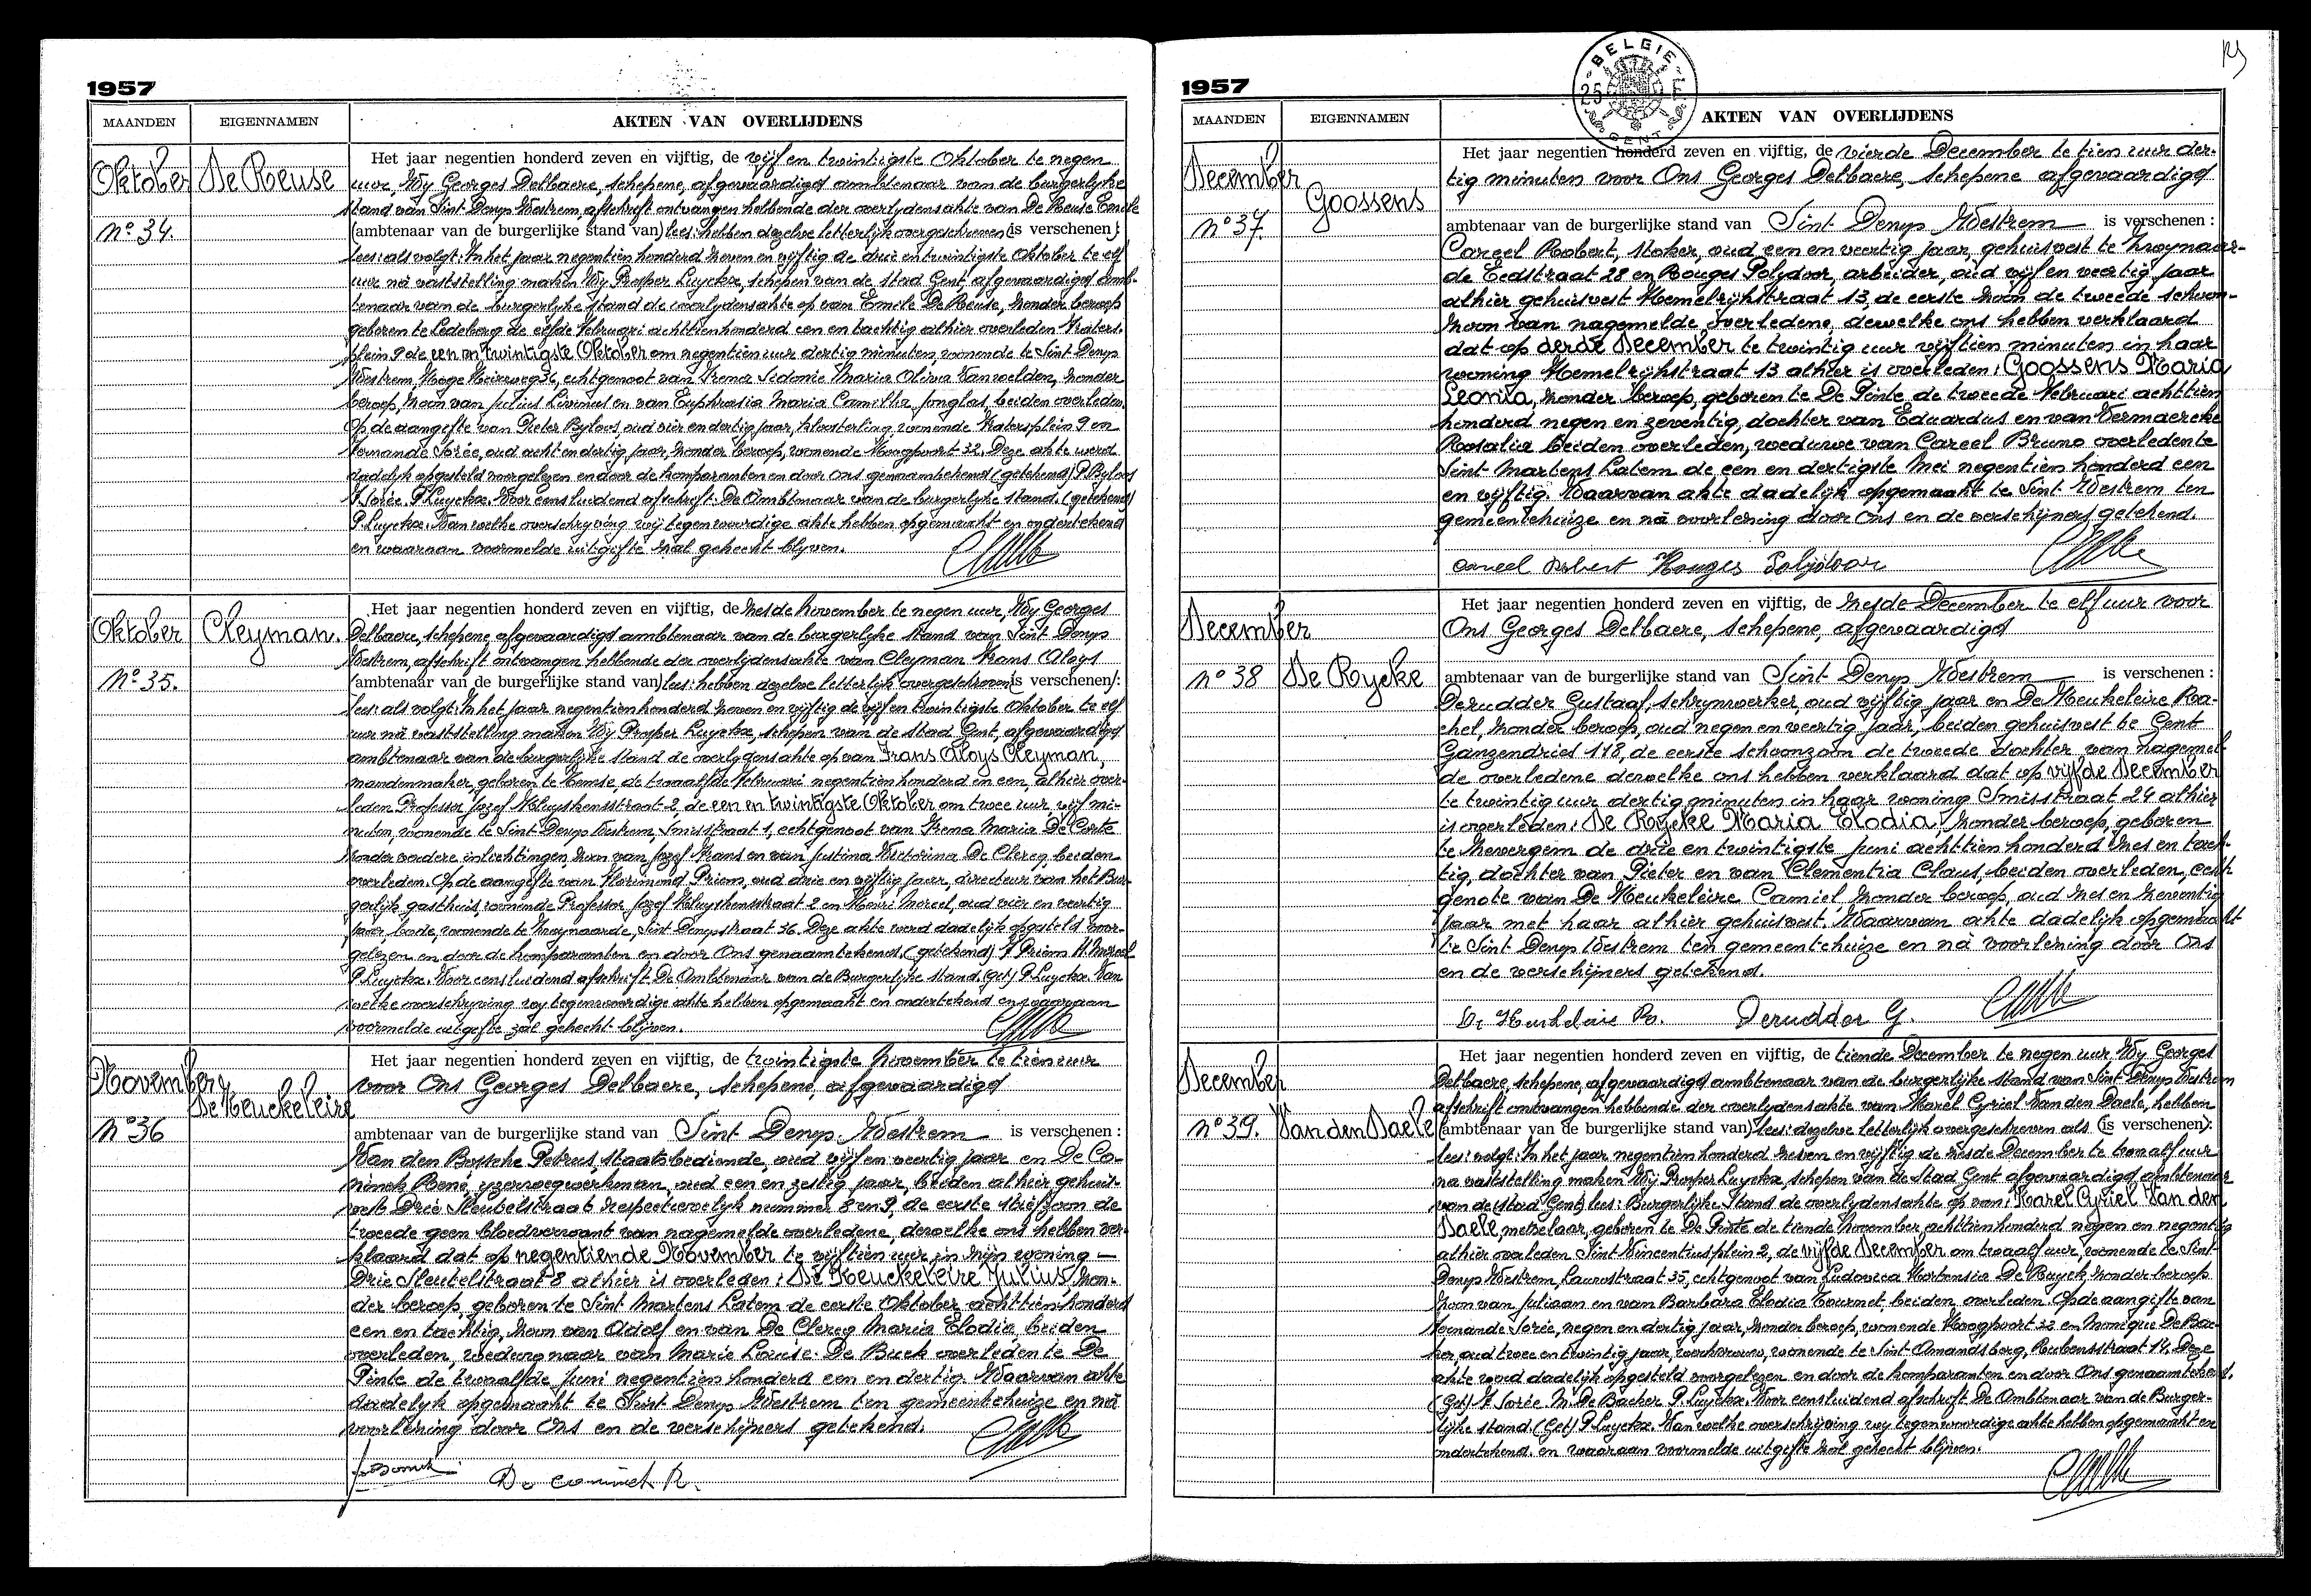 1957
MAANDEN
EIGENNAMEN
AKTEN VAN OVERLIJDENS
Oktober
De Reuse
N° 34.
Het jaar negentien honderd zeven en vijftig, de vijf en twintigste Oktober te negen
uur, Wy Georges Delbaere, schepene, afgevaardigd ambtenaar van de burgerlyke
stand van Sint Denys Westrem, afschrift ontvangen hebbende der overlydensakte van De Reuse Emile
(ambtenaar van de burgerlijke stand van) lees: hebben dezelve letterlijk overgeschreven (is verschenen):
lees: als volgt: In het jaar negentien honderd zeven en vijftig de drie en twintigste Oktober te elf
uur nà vaststelling maken Wy Prosper Luyckx, schepen van de stad Gent, afgevaardigd amb-
tenaar van de burgerlyke stand de overlydensakte op van Emile De Reuse, zonder beroep
geboren te Ledeberg de elfde Februari achttienhonderd een en tachtig alhier overleden Fraters-
plein 9 de een en twintigste Oktober om negentien uur dertig minuten, wonende te Sint Denys
Westrem, Hoge Heirweg 36, echtgenoot van Irena Sidonie Maria Olivia Vanwelden, zonder
beroep, zoon van Julius Livinus en van Euphrasia Maria Camilla Jonglas, beiden overleden.
Op de aangifte van Pieter Byloos, oud vier en dertig jaar, kloosterling wonende Fratersplein 9 en
Fernande Sorée, oud acht en dertig jaar, zonder beroep, wonende Hoogpoort 32. Deze akte werd
dadelijk opgesteld voorgelezen en door de komparanten en door Ons genaamtekend (getekend) P. Byloos
F. Sorée. P. Luyckx. Voor eensluidend afschrift. De Ambtenaar van de burgerlijke stand. (getekend)
P. Luyckx. Van welke overschryving wij tegenwoordige akte hebben opgemaakt en ondertekend
en waaraan voormelde uitgifte zal gehecht blyven.
Oktober
Cleyman.
N° 35.
Het jaar negentien honderd zeven en vijftig, de zesde November te negen uur, Wy Georges
Delbaere, schepene, afgevaardigd ambtenaar van de burgerlyke stand van Sint Denys
Westrem, afschrift ontvangen hebbende der overlijdensakte van Cleyman Frans Aloys
(ambtenaar van de burgerlijke stand van) lees: hebben dezelve letterlijk overgeschreven (is verschenen):
lees: als volgt: In het jaar negentien honderd zeven en vijftig de vijf en twintigste Oktober te elf
uur nà vaststelling maken Wy Prosper Luyckx, schepen van de stad Gent, afgevaardigd
ambtenaar van de burgerlijke stand de overlydensakte op van Frans Aloys Cleyman,
mandenmaker, geboren te Temse, de twaalfde Februari negentien honderd en een, alhier over-
leden Professor Jozef Kluyskensstraat 2, de een en twintigste Oktober om twee uur, vijf mi-
nuten, wonende te Sint Denys Westrem, Smisstraat 1, echtgenoot van Irena Maria De Corte
zonder verdere inlichtingen, zoon van Jozef Frans en van Justina Victorina De Clercq, beiden
overleden. Op de aangifte van Florimond Priem, oud drie en vijftig jaar, directeur van het Bur-
gerlijk gasthuis, wonende Professor Jozef Kluyskensstraat 2 en Henri Moreel, oud vier en veertig
jaar, bode, wonende te Zwynaarde, Sint Denysstraat 36. Deze akte werd dadelijk opgesteld voor-
gelezen en door de komparanten en door Ons genaamtekend. (getekend) F. Priem H. Moreel
P. Luyckx. Voor eensluidend afschrift De Ambtenaar van de Burgerlijke stand. (Get) P. Luyckx. Van
welke overschryving wy tegenwoordige akte hebben opgemaakt en ondertekend en waaraan
voormelde uitgifte zal gehecht blijven.
November
De Keuckeleire
N° 36
Het jaar negentien honderd zeven en vijftig, de twintigste November te tien uur
voor Ons Georges Delbaere, schepene, afgevaardigd
ambtenaar van de burgerlijke stand van Sint Denys Westrem is verschenen :
Van den Bossche Petrus, staatsbediende, oud vijf en veertig jaar en De Co-
ninck René, yzerwegwerkman, oud een en zestig jaar, beiden alhier gehuis-
vest Drie Sleutelstraat respectievelyk nummer 8 en 9, de eerste stiefzoon de
tweede geen bloedverwant van nagemelde overledene, dewelke ons hebben ver-
klaard dat op negentiende November te vijftien uur in zijn woning
Drie Sleutelstraat 8 alhier is overleden: De Keuckeleire Julius, zon-
der beroep, geboren te Sint Martens Latem de eerste Oktober achttien honderd
een en tachtig, zoon van Adolf en van De Clercq Maria Elodia, beiden
overleden, weduwnaar van Marie Louise De Buck overleden te De
Pinte de twaalfde Juni negentien honderd een en dertig. Waarvan akte
dadelyk opgemaakt te Sint Denys Westrem ten gemeentehuize en nà
voorlezing door Ons en de verschijners getekend.
De coninck R.
1957
BELGIE
25 F
GENT
MAANDEN
EIGENNAMEN
AKTEN VAN OVERLIJDENS
December
Goossens
N° 37.
Het jaar negentien honderd zeven en vijftig, de vierde December te tien uur der-
tig minuten voor Ons Georges Delbaere, schepene afgevaardigd
ambtenaar van de burgerlijke stand van Sint Denys Westrem is verschenen :
Careel Robert, stoker, oud een en veertig jaar, gehuisvest te Zwynaar-
de Eedstraat 28 en Rouges Polydoor, arbeider, oud vijf en veertig jaar
alhier gehuisvest Hemelrijkstraat 13, de eerste zoon de tweede schoon-
zoon van nagemelde overledene, dewelke ons hebben verklaard
dat op derde December te twintig uur vijftien minuten in haar
woning Hemelrijkstraat 13 alhier is overleden: Goossens Maria
Leonia, zonder beroep, geboren te De Pinte de tweede Februari achttien
honderd negen en zeventig, dochter van Eduardus en van Vermaercke
Rosalia beiden overleden, weduwe van Careel Bruno overleden te
Sint Martens Latem de een en dertigste Mei negentien honderd een
en vijftig. Waarvan akte dadelijk opgemaakt te Sint Westrem ten
gemeentehuize en nà voorlezing door Ons en de verschijners getekend.
Careel Robert Rouges Polijdoor
December
De Rycke
N° 38
Het jaar negentien honderd zeven en vijftig, de zesde December te elf uur voor
Ons Georges Delbaere, schepene, afgevaardigd
ambtenaar van de burgerlijke stand van Sint Denys Westrem is verschenen :
Derudder Gustaaf, schrynwerker, oud vijftig jaar en De Keukeleire Ra-
chel, zonder beroep, oud negen en veertig jaar, beiden gehuisvest te Gent
Ganzendries 118, de eerste schoonzoon de tweede dochter van nagemel-
de overledene dewelke ons hebben verklaard dat op vijfde December
te twintig uur dertig minuten in haar woning Smisstraat 24 alhier
is overleden: De Rycke Maria Elodia, zonder beroep, geboren
te Zevergem de drie en twintigste Juni achttien honderd zes en tach-
tig, dochter van Pieter en van Clementia Claus, beiden overleden, echt-
genote van De Keukeleire Camiel zonder beroep, oud zes en zeventig
jaar met haar alhier gehuisvest. Waarvan akte dadelijk opgemaakt
te Sint Denys Westrem ten gemeentehuize en nà voorlezing door Ons
en de verschijners getekend.
De Keukeleire Ra. Derudder G.
December
Van den Daele
N° 39.
Het jaar negentien honderd zeven en vijftig, de tiende December te negen uur Wy Georges
Delbaere, schepene, afgevaardigd ambtenaar van de burgerlijke stand van Sint Denys Westrem
afschrift ontvangen hebbende der overlydensakte van Karel Cyriel Van den Daele, hebben
(ambtenaar van de burgerlijke stand van) lees: dezelve letterlijk overgeschreven als (is verschenen):
lees: volgt: In het jaar negentien honderd zeven en vijftig de zesde December te twaalf uur
na vaststelling maken Wij Prosper Luyckx schepen van de Stad Gent afgevaardigd ambtenaar
van de (stad Gent) lees: Burgerlijke Stand de overlydensakte op van: Karel Cyriel Van den
Daele, metselaar, geboren te De Pinte de tiende November, achttienhonderd negen en negentig
alhier overleden Sint Vincentiusplein 2, de vijfde December om twaalf uur, wonende te Sint
Denys Westrem, Laurestraat 35, echtgenoot van Ludovica Hortensia De Buyck zonder beroep
zoon van Juliaan en van Barbara Elodia Tournet, beiden overleden. Op de aangifte van
Fernande Sorée, negen en dertig jaar, zonder beroep, wonende Hoogpoort 32 en Monique De Bac-
ker, oud twee en twintig jaar, werkvrouw, wonende te Sint Amandsberg, Rubensstraat 14. Deze
akte werd dadelijk opgesteld voorgelezen en door de komparanten en door Ons genaamtekend.
(Get) F. Sorée M. De Backer P. Luyckx. Voor eensluidend afschrift De Ambtenaar van de Burger-
lijke stand. (Get) P. Luyckx. Van welke overschrijving wy tegenwoordige akte hebben opgemaakt en
ondertekend. en waaraan voormelde uitgifte zal gehecht blijven.